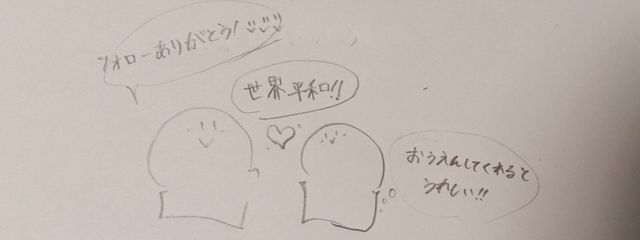 フォローありがとう!
世界平和!!
おうえんしてくれると
うれしい!!